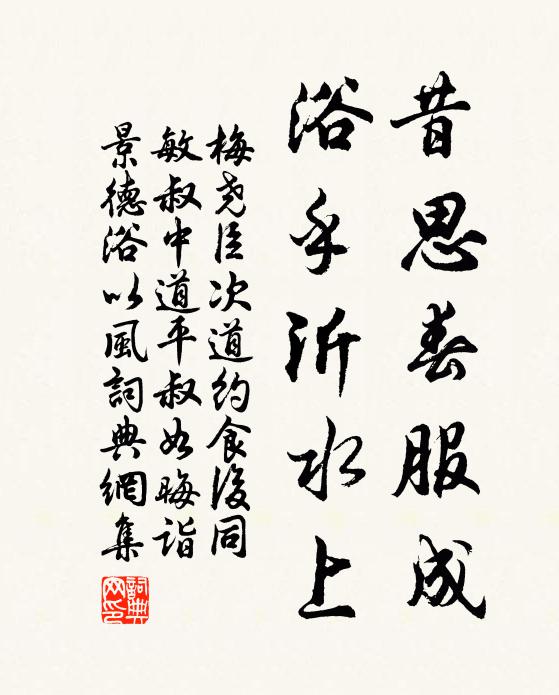 昔思春服成
浴乎沂水上
梅尧臣次道約食後同
敏叔中道平叔如晦詣
景德浴以風詞典網集
詞典
网印